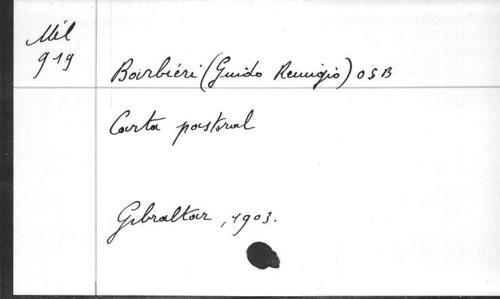 Mél
919
Barbiéri (Guido Remigio) OSB
Carta pastoral
Gibraltar, 1903.